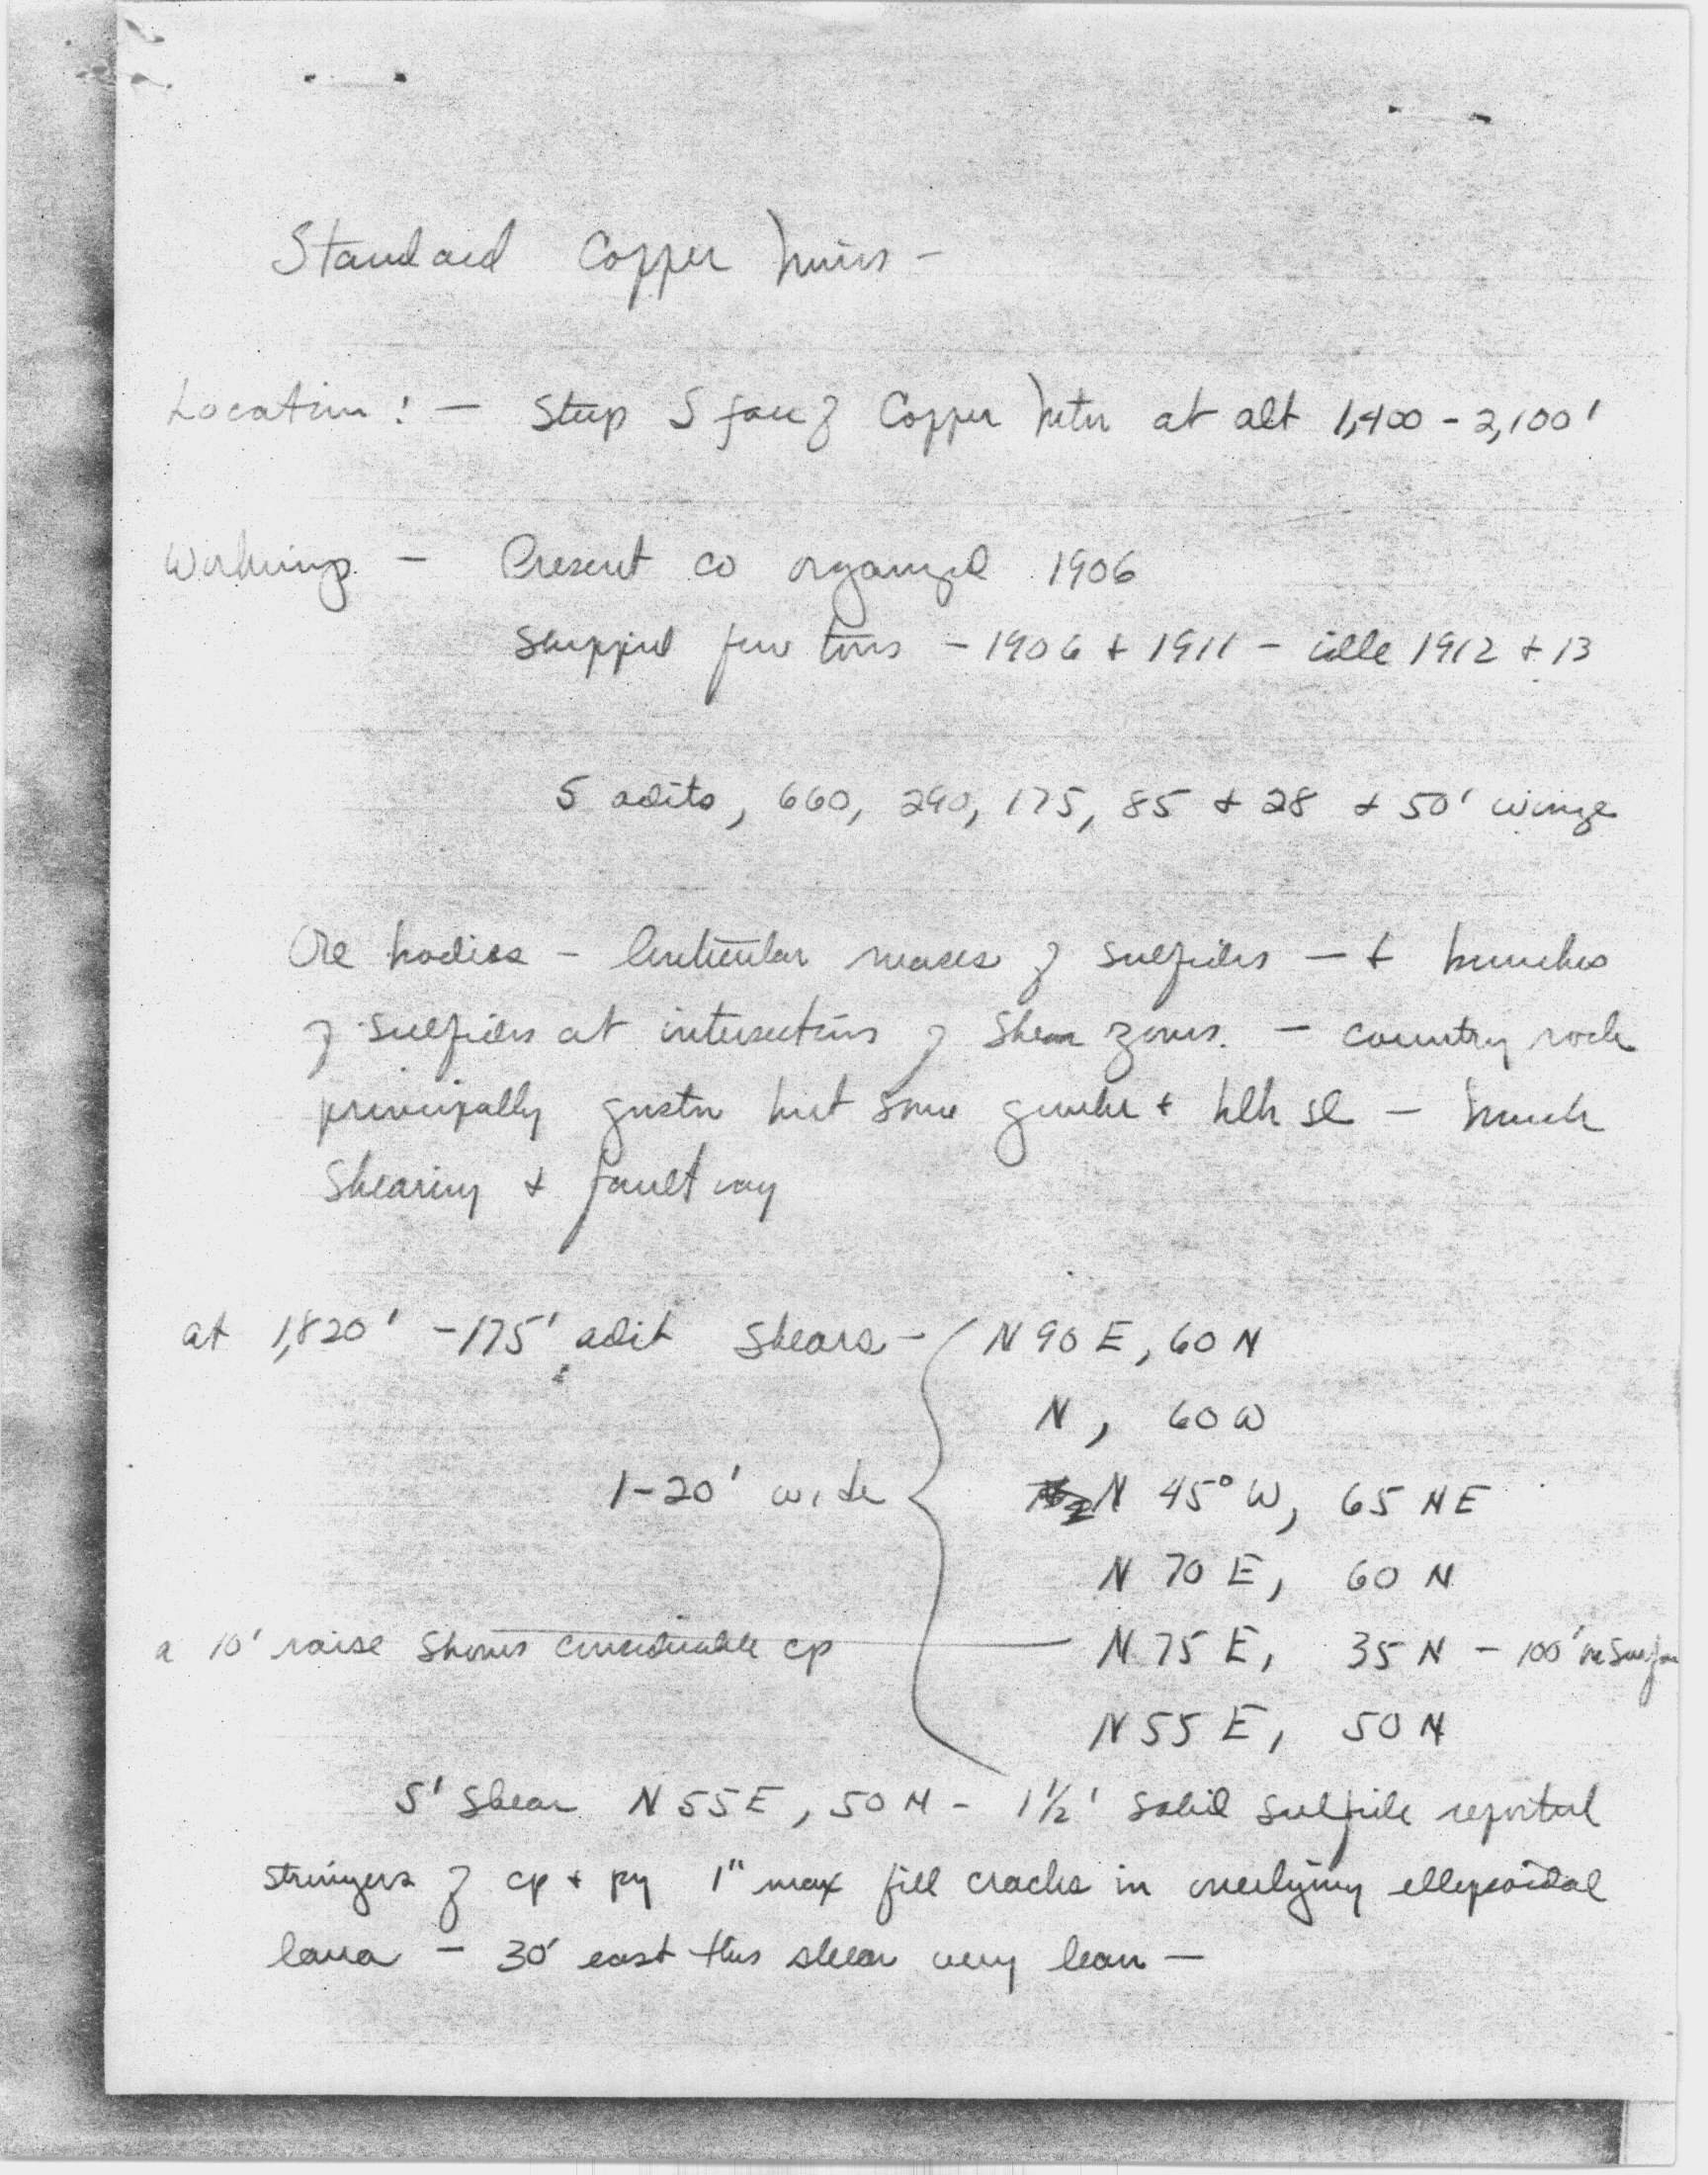 Standard Copper Mines –
Location : – Steep S face of Copper Mtn at alt 1,400 – 2,100'
Workings – Present co organized 1906
Shipped few tons – 1906 + 1911 – idle 1912 + 13
5 adits, 660, 290, 175, 85 + 28 + 50' winze
Ore bodies – lenticular masses of sulfides – + bunches
of sulfides at intersections of shear zones. – country rock
principally gnstn but some gwcke + blk sl – much
shearing + faulting
at 1,820' – 175' adit shears – N 90 E, 60 N
N, 60 W
1–20' wide N 45° W, 65 NE
N 70 E, 60 N
a 10' raise shows considerable cp — N 75 E, 35 N – 100'
N 55 E, 50 N
5' shear N 55 E, 50 N – 1 1/2' solid sulfide reported
stringers of cp + py 1" max fill cracks in overlying ellipsoidal
lava – 30' east this shear very lean –